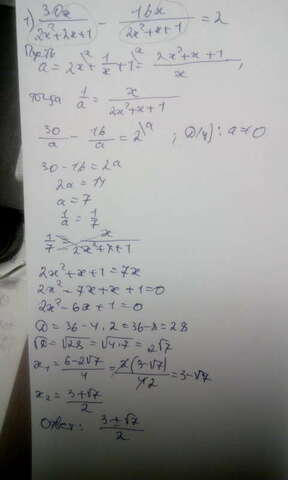 1) 30x/(2x²+2x+1) - 16x/(2x²+x+1) = 2
Пусть
a = 2x + 1/x + 1 = (2x²+x+1)/x ,
тогда 1/a = x/(2x²+x+1)
30/a - 16/a = 2 \a ; ОДЗ: a ≠ 0
30-16=2a
2a = 14
a = 7
1/a = 1/7
1/7 = x/(2x²+x+1)
2x²+x+1=7x
2x²-7x+x+1=0
2x²-6x+1=0
D=36-4·2=36-8=28
√D=√28=√4·7=2√7
x₁= (6-2√7)/4 = 2(3-√7)/4 2 = 3-√7
x₂= (3+√7)/2
Ответ: (3±√7)/2